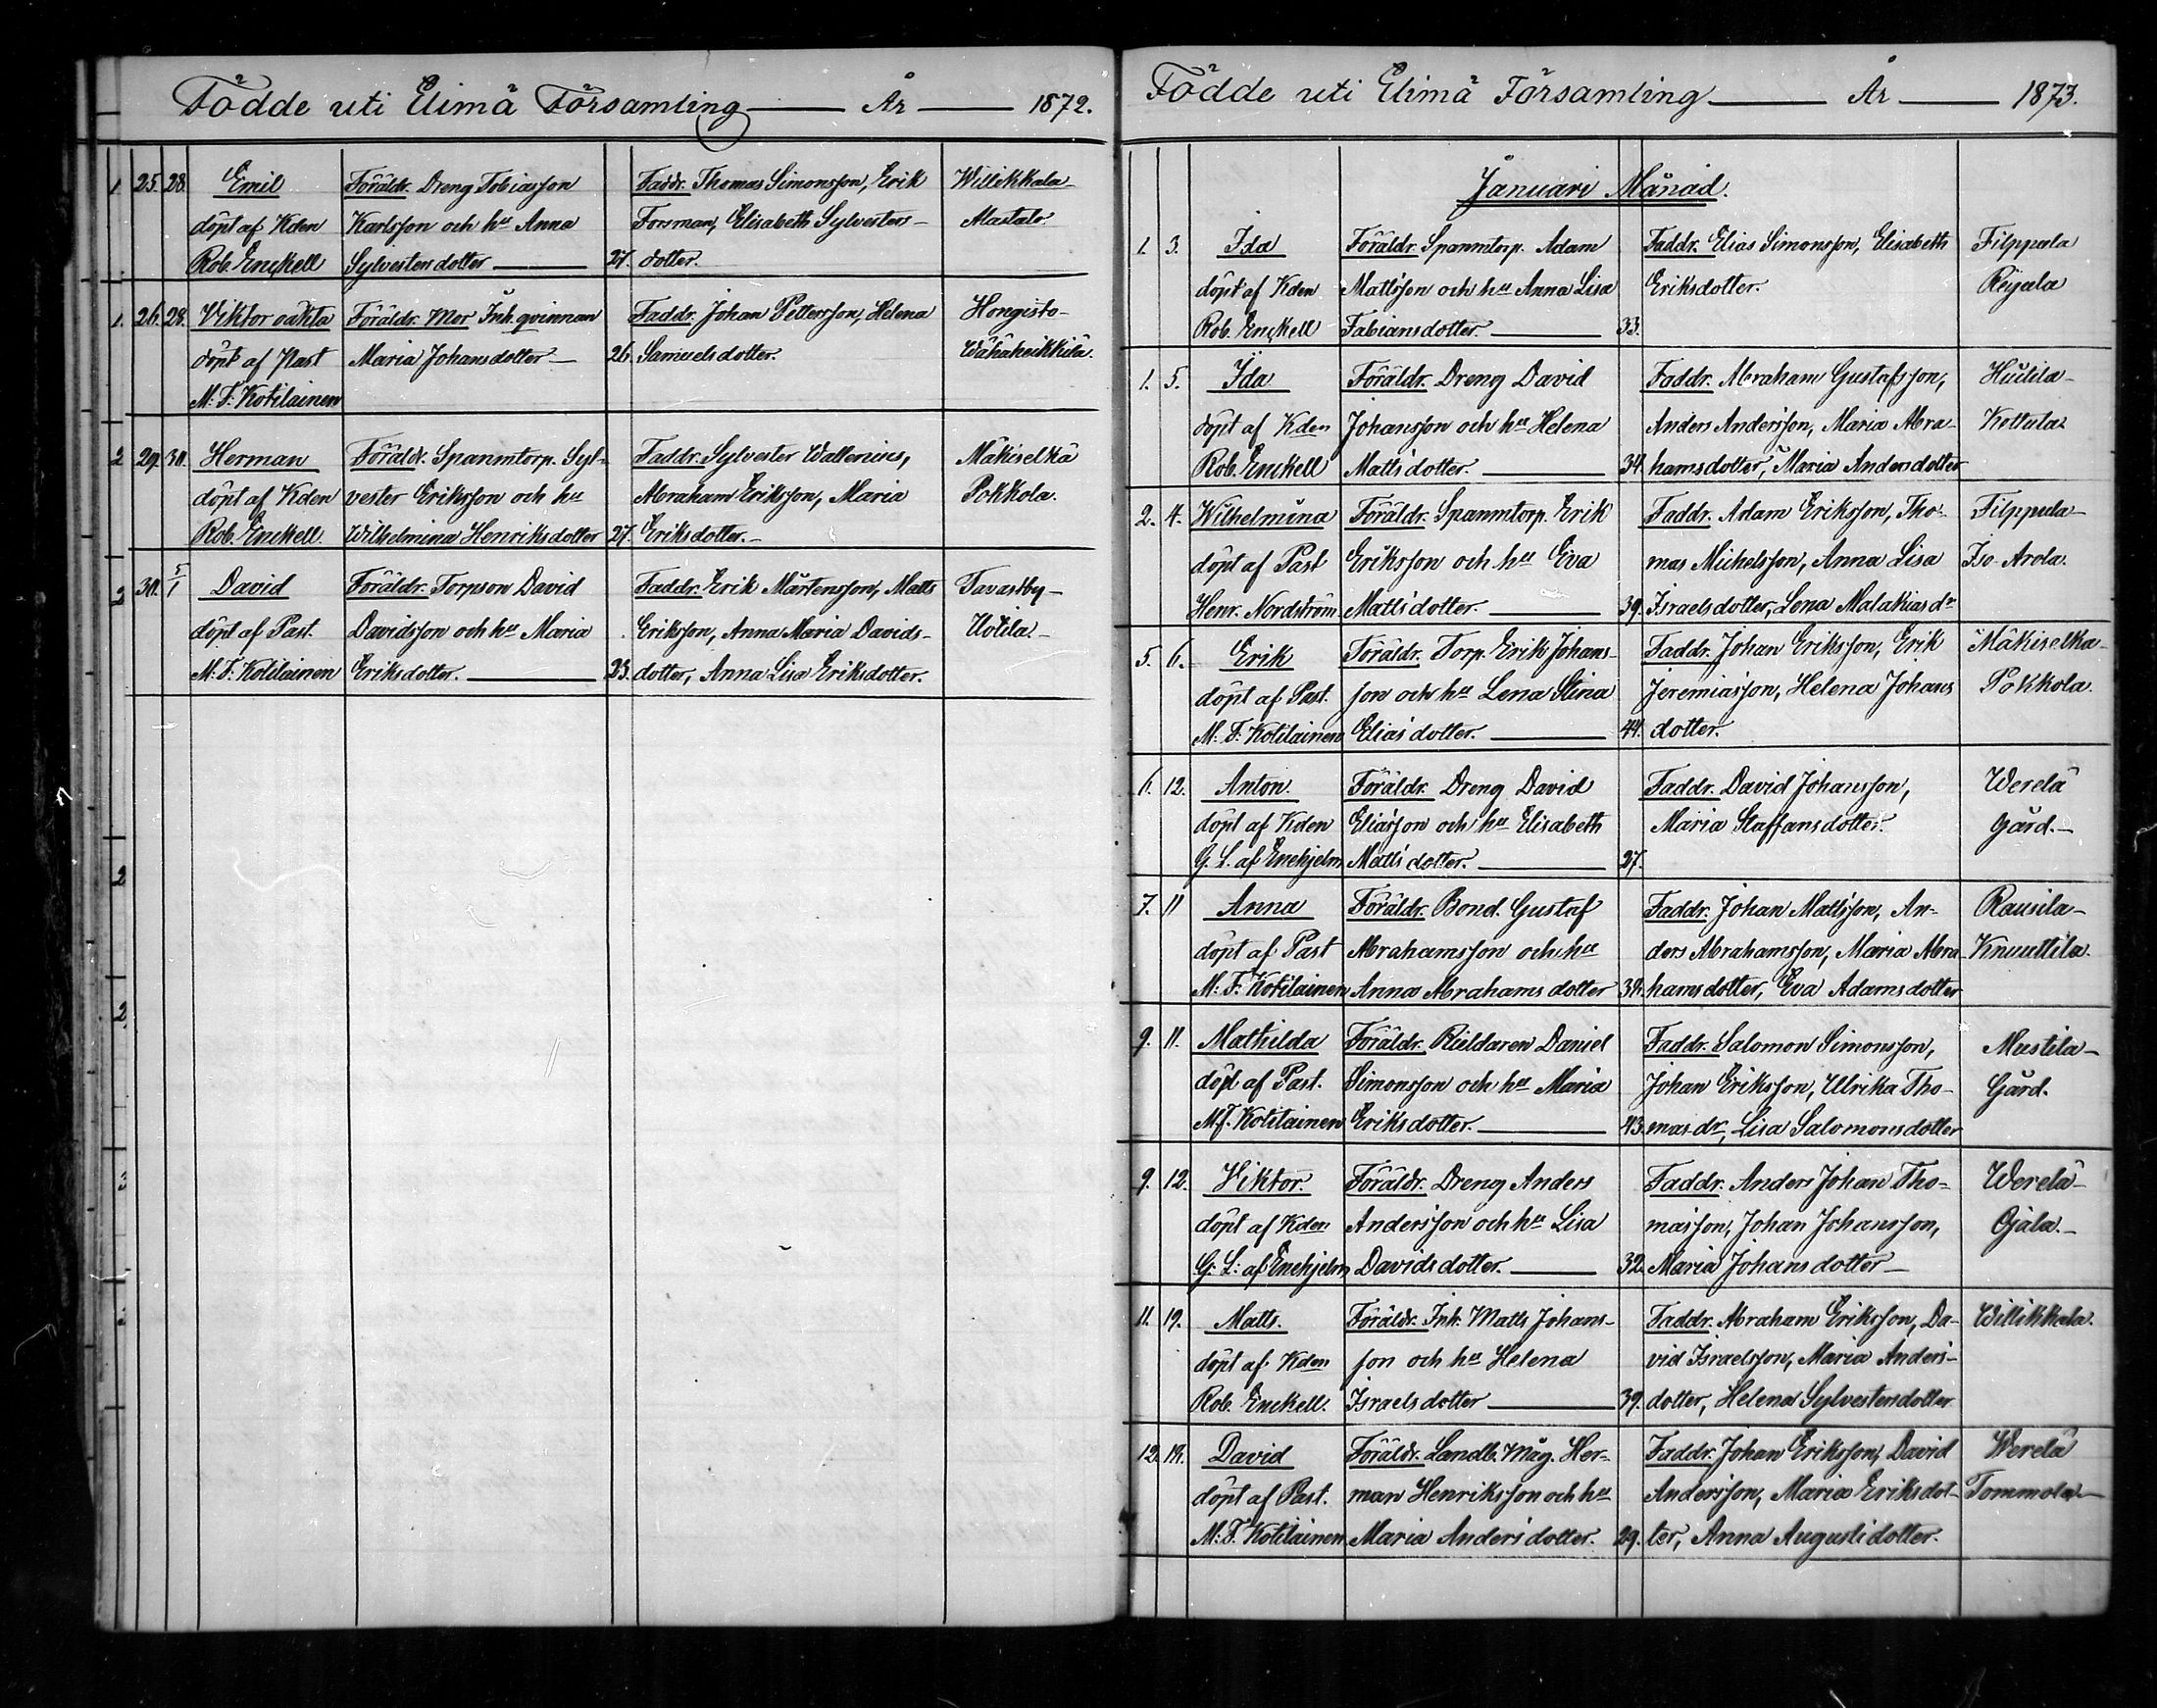 Födde uti Elimä Församling — År — 1872.
25. 28. Emil Föräldr. Dreng Tobiasson Faddr. Thomas Simonsson, Erik Willikkala-
döpt af Kden Karlsson och hu Anna Forsman, Elisabeth Sylvesters- Mastala.
Rob. Enckell Sylvesters dotter — 27. dotter.
26. 28. Viktor oäkta Föräldr. Mor Inh. qvinnan Faddr. Johan Pettersson, Helena Hongisto-
döpt af Past Maria Johansdotter — 26. Samuelsdotter. Wähäheikkilä.
M. F. Kotilainen
29. 30. Herman Föräldr. Spanmtorp. Syl- Faddr. Sylvester Wallenius, Mäkiselkä
döpt af Kden vester Eriksson och hu Abraham Eriksson, Maria Pokkola.
Rob. Enckell. Wilhelmina Henriksdotter 27. Eriksdotter.-
30. 5/1 David Föräldr. Torpson David Faddr. Erik Mårtensson, Matts Tavastby-
döpt af Past. Davidsson och hu Maria Eriksson, Anna Maria Davids- Uotila.-
M. F. Kotilainen Eriksdotter. — 23. dotter, Anna Lisa Eriksdotter.
Födde uti Elimä Församling — År — 1873.
Januari Månad.
1. 3. Ida Föräldr. Spanmtorp. Adam Faddr. Elias Simonsson, Elisabeth Filppula
döpt af Kden Mattsson och hu Anna Lisa Eriksdotter. Reijala
Rob. Enckell Fabiansdotter — 33.
1. 5. Ida Föräldr. Dreng David Faddr. Abraham Gustafsson,
döpt af Kden Johansson och hu Helena Anders Andersson, Maria Abra- Kettula
Rob. Enckell Mattsdotter. — 34. hamsdotter, Maria Andersdotter
2. 4. Wilhelmina Föräldr. Spanmtorp. Erik Faddr. Adam Eriksson, Tho- Filppula-
döpt af Past Eriksson och hu Eva mas Michelsson, Anna Lisa Iso-Arola.
Henr. Nordström Matts dotter. — 39. Israelsdotter, Lena Malakias dr
5. 6. Erik Föräldr. Torp. Erik Johans- Faddr. Johan Eriksson, Erik Mäkiselkä-
döpt af Past. son och hu Lena Stina Jeremiasson, Helena Johans Pokkola.
M. F. Kotilainen Elias dotter. — 44. dotter.
6. 12. Anton. Föräldr. Dreng David Faddr. David Johansson, Werelä
döpt af Kden Eliasson och hu Elisabeth Maria Staffansdotter. gård.-
G. L. af Enehjelm Matts dotter. — 27.
7. 11 Anna Föräldr. Bond. Gustaf Faddr. Johan Mattsson, An- Rausila-
döpt af Past Abrahamsson och hu ders Abrahamsson, Maria Abra- Knuuttila.
M. F. Kotilainen Anna Abrahams dotter 32. hamsdotter, Eva Adamsdotter
9. 11. Mathilda Föräldr. Rieldaren Daniel Faddr. Salomon Simonsson, Mustila-
döpt af Past. Simonsson och hu Maria Johan Eriksson, Ulrika Tho- Gård.
M. F. Kotilainen Eriksdotter. — 43. mas dr, Lisa Salomonsdotter
9. 12. Viktor. Föräldr. Dreng Anders Faddr. Anders Johan Tho- Werelä-
döpt af Kden Andersson och hu Lisa masson, Johan Johansson, Ojala.-
G. L. af Enehjelm Davidsdotter. — 32. Maria Johansdotter-
11. 19. Matts. Föräldr. Inh. Matts Johans- Faddr. Abraham Eriksson, Da- Willikkala.
döpt af Kden son och hu Helena vid Israelsson, Maria Anders-
Rob. Enckell. Israels dotter — 39. dotter, Helena Sylvestersdotter
12. David Föräldr. Landb. Måg. Her- Faddr. Johan Eriksson, David Werelä
döpt af Past. man Henriksson och hu Andersson, Maria Eriksdot- Tommola-
M. F. Kotilainen Maria Anders dotter. 29. ter, Anna Augustidotter.